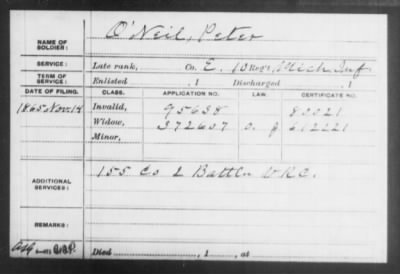 NAME OF SOLDIER: O'Neil, Peter
SERVICE: Late rank, Co. E, 10 Reg't, Mich. Inf
TERM OF SERVICE: Enlisted , 1 Discharged , 1
DATE OF FILING. CLASS. APPLICATION NO. LAW. CERTIFICATE NO.
1865 Nov. 14 Invalid, 95638
Widow, 372607
Minor,
ADDITIONAL SERVICES: 155 Co 2 Battln V.R.C.
REMARKS:
Died , 1 , at